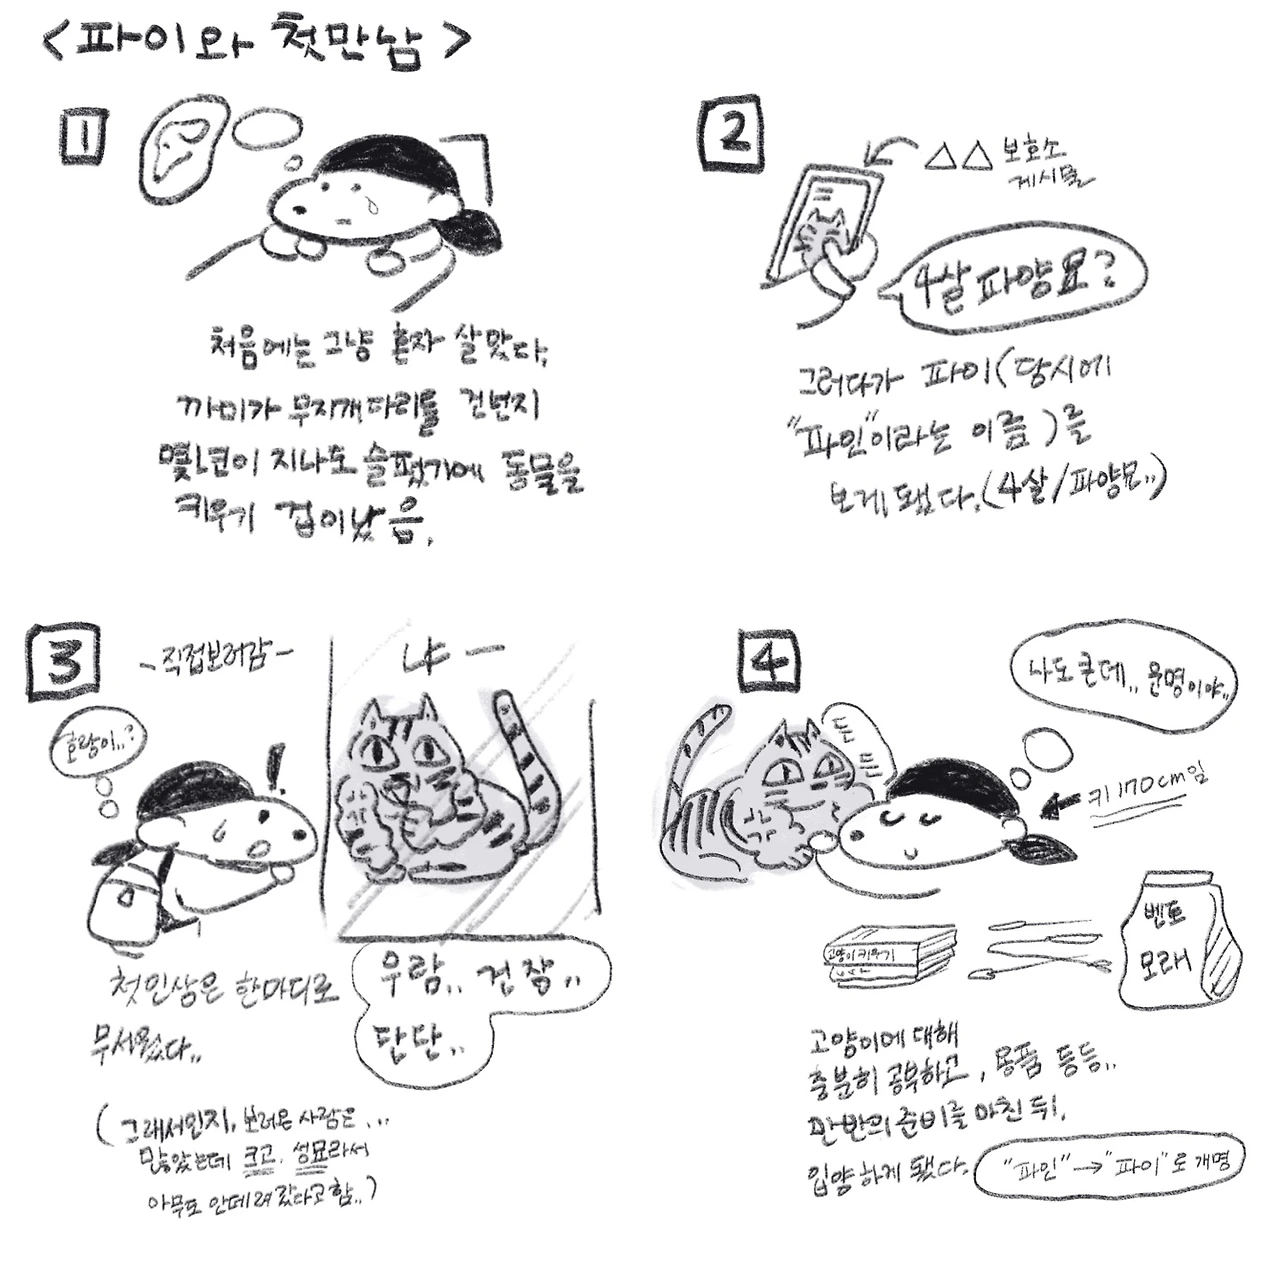 <파이와 첫만남>
1
처음에는 그냥 혼자 살맞다,
까미가 무지개다리를 건넌지
몇년이 지나도 슬펐기에 동물을
키우기 겁이났음.
2
△△ 보호소
게시물
4살 파양묘?
그러다가 파이(당시에
"파인"이라는 이름)를
보게 됐다.(4살/파양묘..)
3
-직접보러감-
호랑이..?
!
냐ー
첫인상은 한마디로
무서웠다..
우람.. 건장..
단단..
(그래서인지, 보러온 사람은...
많았는데 크고, 성묘라서
아무도 안데려갔다고함..)
4
나도 큰데.. 운명이야..
든
든
키 170cm임
고양이 키우기
벤토
모래
고양이에 대해
충분히 공부하고, 용품 등등..
만반의 준비를 마친 뒤,
입양하게 됐다.
"파인"→"파이"로 개명